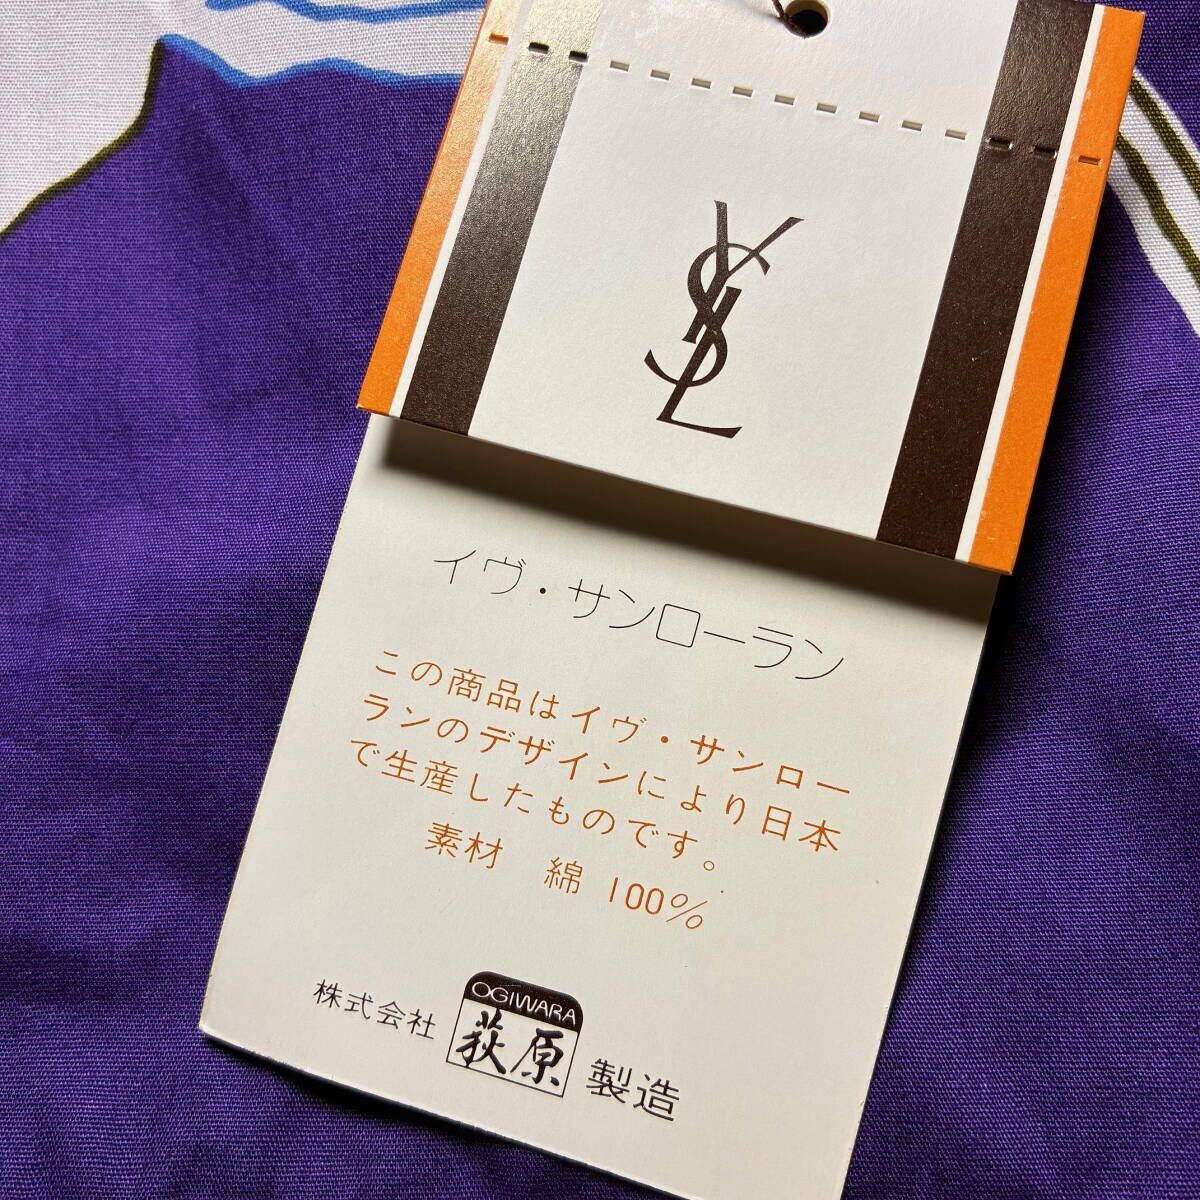 YSL
イヴ・サンローラン
この商品はイヴ・サンロー
ランのデザインにより日本
で生産したものです。
素材 綿 100%
OGIWARA
株式会社 荻原 製造